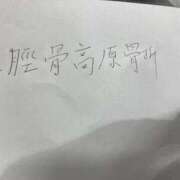 脛骨高原骨折